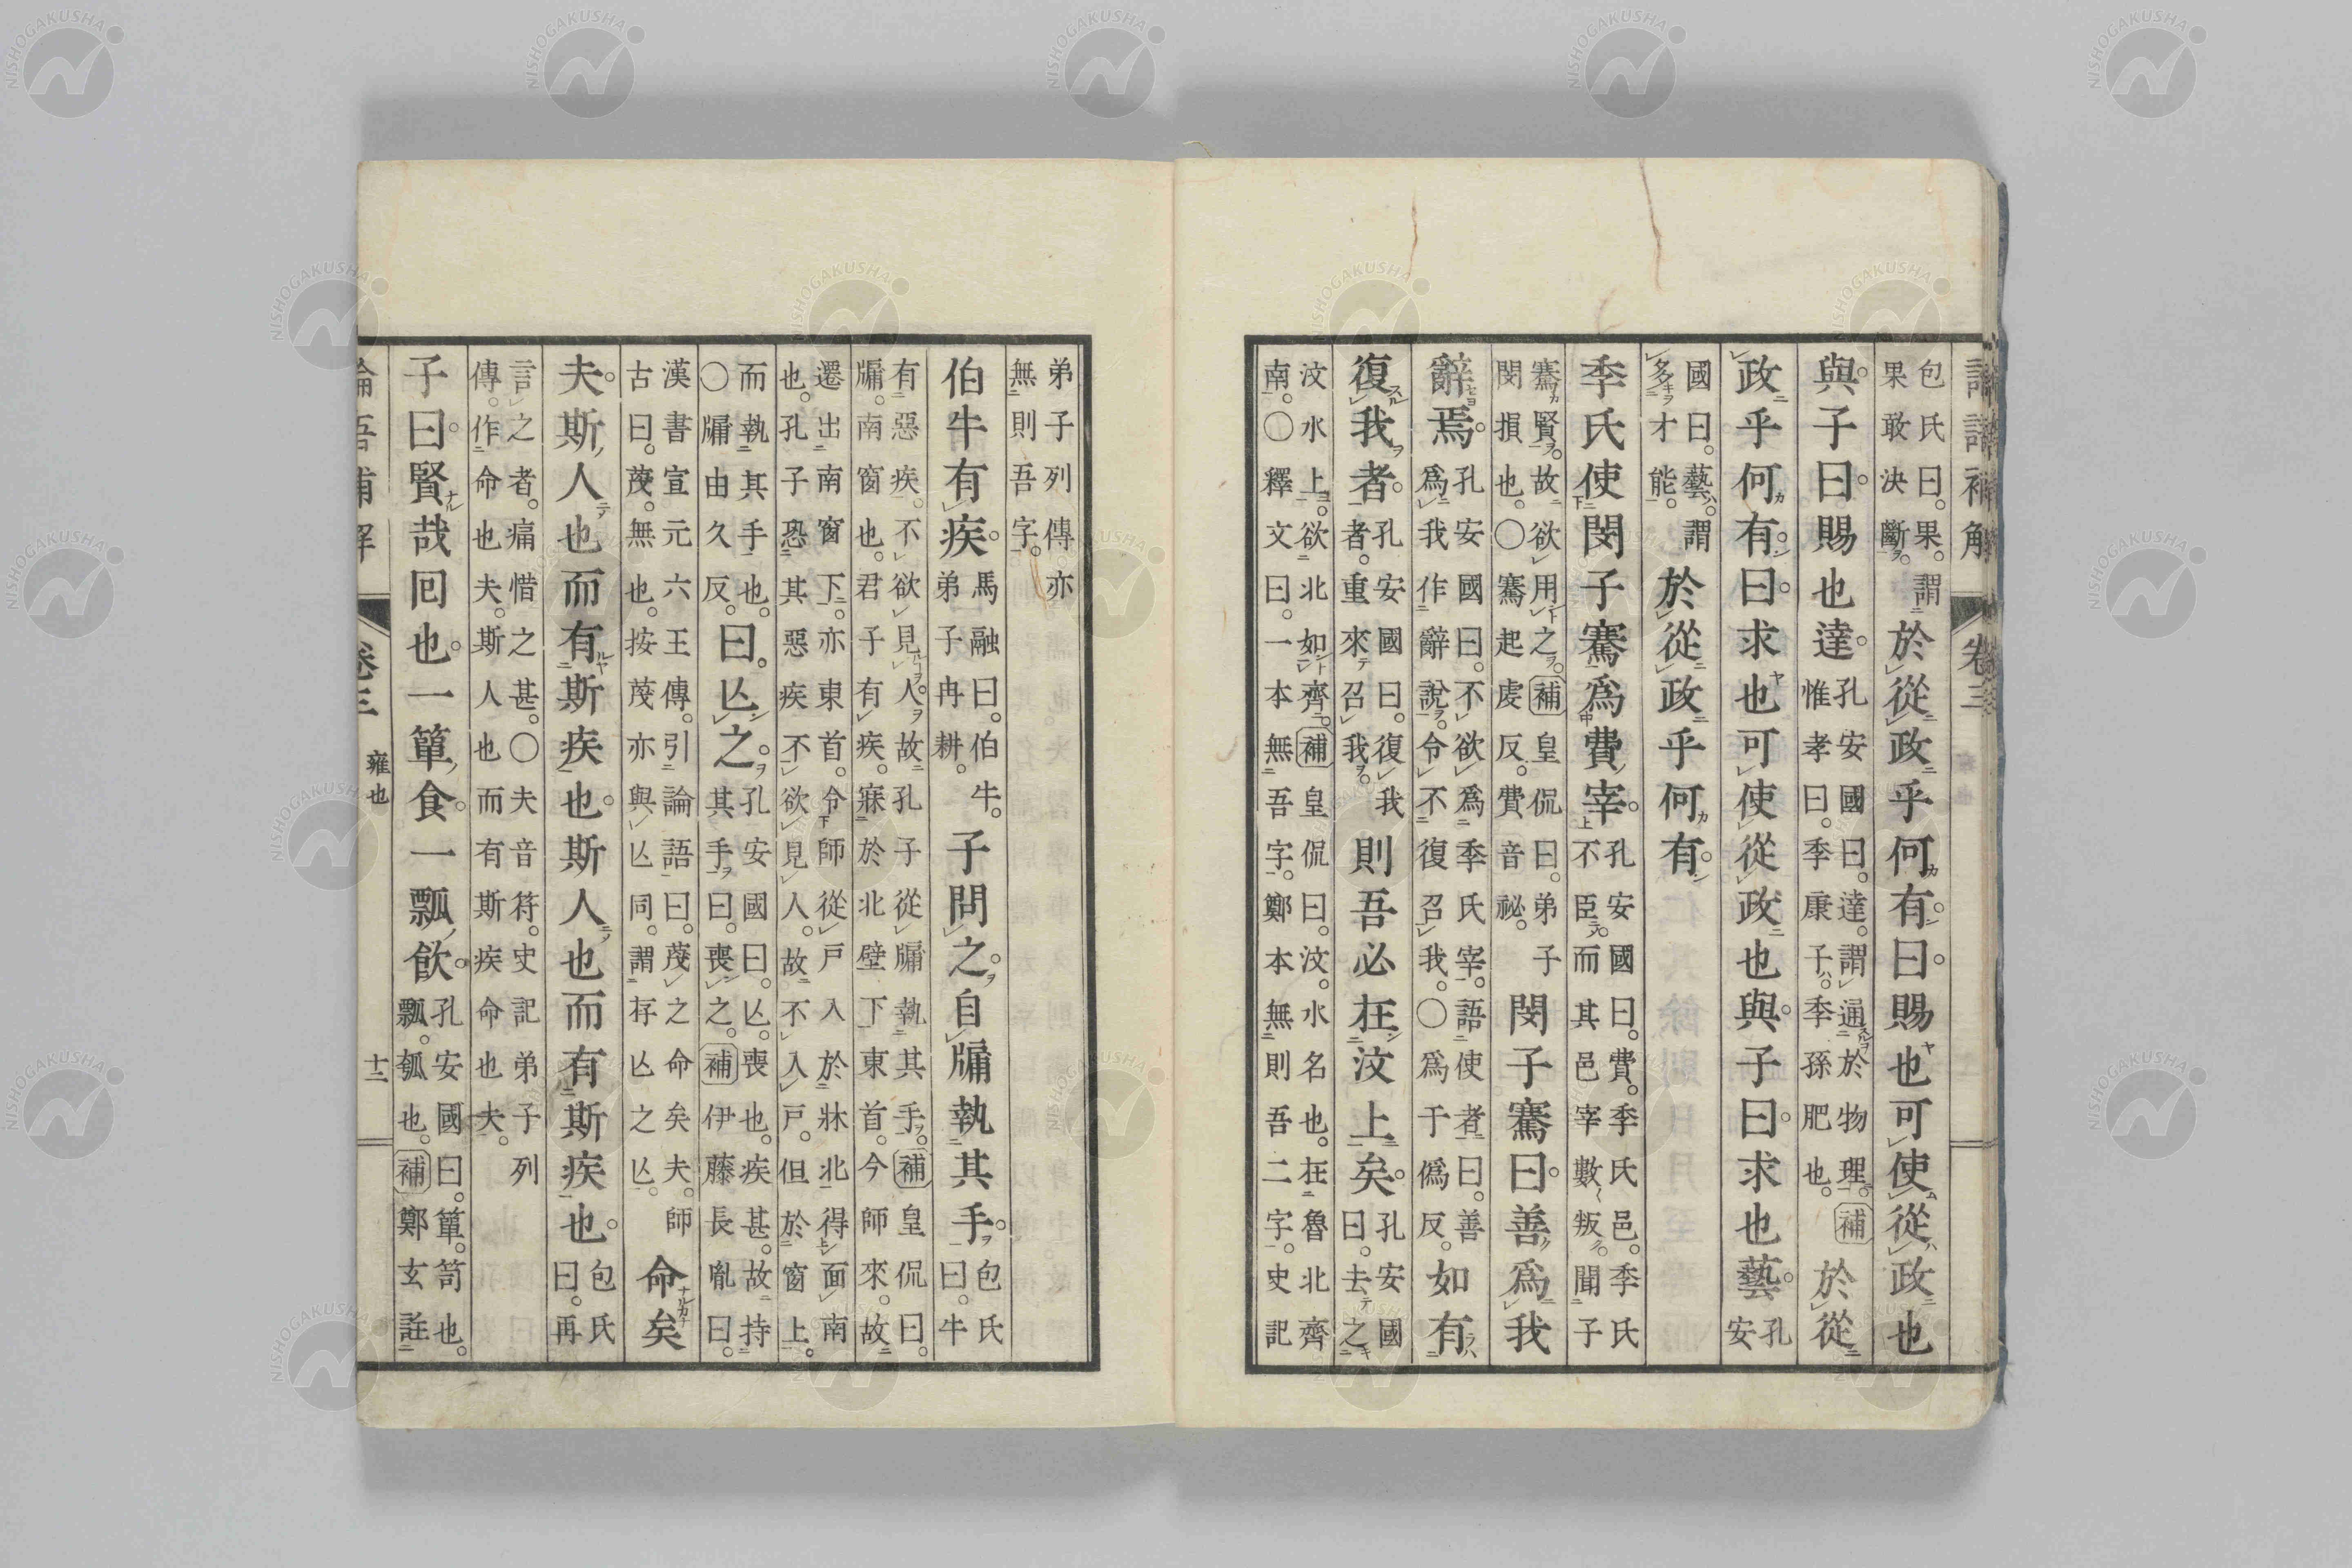 論語補解 卷三
包氏曰。果。謂果敢決斷。於從政乎何有。曰。賜也可使從政也
與。子曰。賜也達。孔安國曰。達。謂通於物理。補惟孝曰。季康子。季孫肥也。於從
政乎何有。曰。求也可使從政也與。子曰。求也藝。孔安
國曰。藝。謂多才能。於從政乎何有。
季氏使閔子騫爲費宰。孔安國曰。費。季氏邑。季氏不臣。而其邑宰數叛。聞子
騫賢。故欲用之。補皇侃曰。弟子閔損也。○騫起虔反。費音祕。閔子騫曰。善爲我
辭焉。孔安國曰。不欲爲季氏宰。語使者曰。善爲我作辭說。令不復召我。○爲于僞反。如有
復我者。孔安國曰。復我者。重來召我。則吾必在汶上矣。孔安國曰。去之
汶水上。欲北如齊。補皇侃曰。汶。水名也。在魯北齊南。○釋文曰。一本無吾字。鄭本無則吾二字。史記
弟子列傳亦無則吾字。
伯牛有疾。馬融曰。伯牛。弟子冉耕。子問之。自牖執其手。包氏曰。牛
有惡疾。不欲見人。故孔子從牖執其手。補皇侃曰。牖。南窗也。君子有疾。寢於北壁下東首。今師來。故
遷出南窗下。亦東首。令師從戶入於牀北。得面南也。孔子恐其惡疾不欲見人。故不入戶。但於窗上。
而執其手也。○牖由久反。曰。亡之。孔安國曰。亡。喪也。疾甚。故持其手。曰。喪之。補伊藤長胤曰。
漢書宣元六王傳。引論語曰。蔑之命矣夫。師古曰。蔑。無也。按蔑亦與亡同。謂存亡之亡。命矣
夫。斯人也而有斯疾也。斯人也而有斯疾也。包氏曰。再
言之者。痛惜之甚。○夫音符。史記弟子列傳。作命也夫。斯人也而有斯疾命也夫。
子曰。賢哉囘也。一簞食。一瓢飮。孔安國曰。簞。笥也。瓢。瓠也。補鄭玄註
論語補解 卷三 雍也 十二